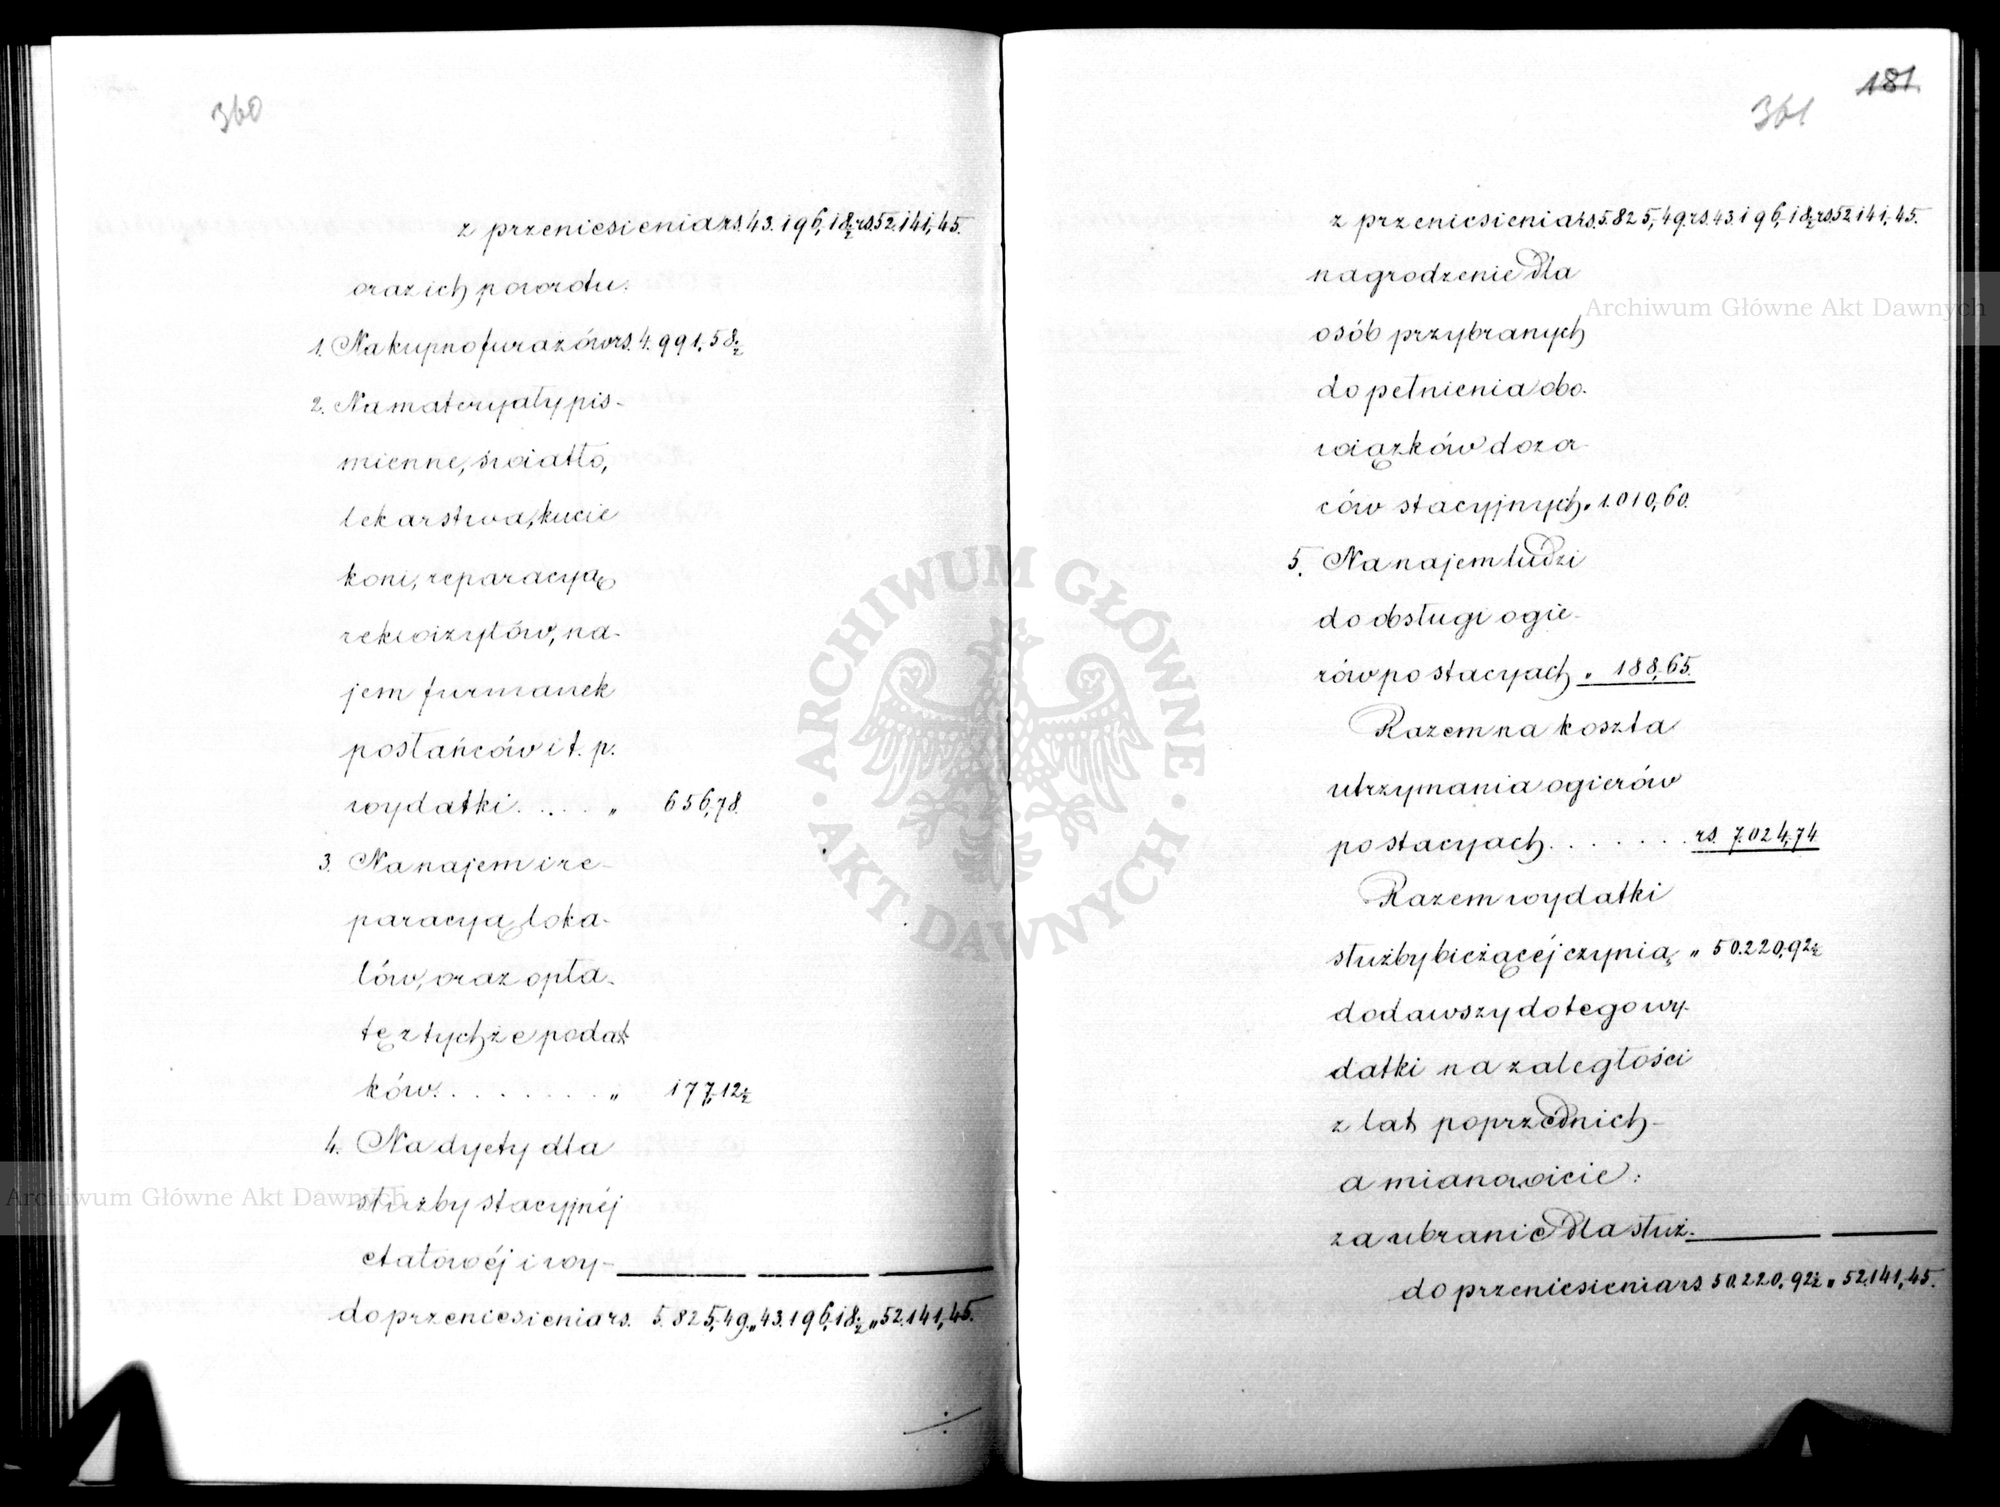 360
z przeniesienia rs. 43.196,18½ rs. 52.141,45.
oraz ich powrotu.
1. Na kupno furażów rs. 4.991,58½
2. Na materyały pis-
mienne, światło,
lekarstwa, kucie
koni, reparacyą
rekwizytów, na-
jem furmanek
posłańców i t. p.
wydatki..... „ 656,78.
3. Na najem i re-
paracyą loka-
lów, oraz opła-
tę z tychże podat
ków........ „ 177,12½
4. Na dyety dla
służby stacyjnéj
etatowéj i wy-
do przeniesienia rs. 5.825,49. „ 43.196,18½ „ 52.141,45.
181.
361
z przeniesienia rs. 5.825,49. rs. 43.196,18½ rs. 52.141,45.
nagrodzenie dla
osób przybranych
do pełnienia obo-
wiązków dozor
ców stacyjnych „ 1.010,60.
5. Na najem ludzi
do obsługi ogie-
rów po stacyach „ 188,65.
Razem na koszta
utrzymania ogierów
po stacyach....... rs. 7.024,74
Razem wydatki
służby bieżącéj czynią „ 50.220,92½
dodawszy do tego wy-
datki na zaległości
z lat poprzednich-
a mianowicie:
za ubranie dla służ-
do przeniesienia rs. 50.220,92½ „ 52.141,45.
ARCHIWUM GŁÓWNE
AKT DAWNYCH
Archiwum Główne Akt Dawnych
Archiwum Główne Akt Dawnych